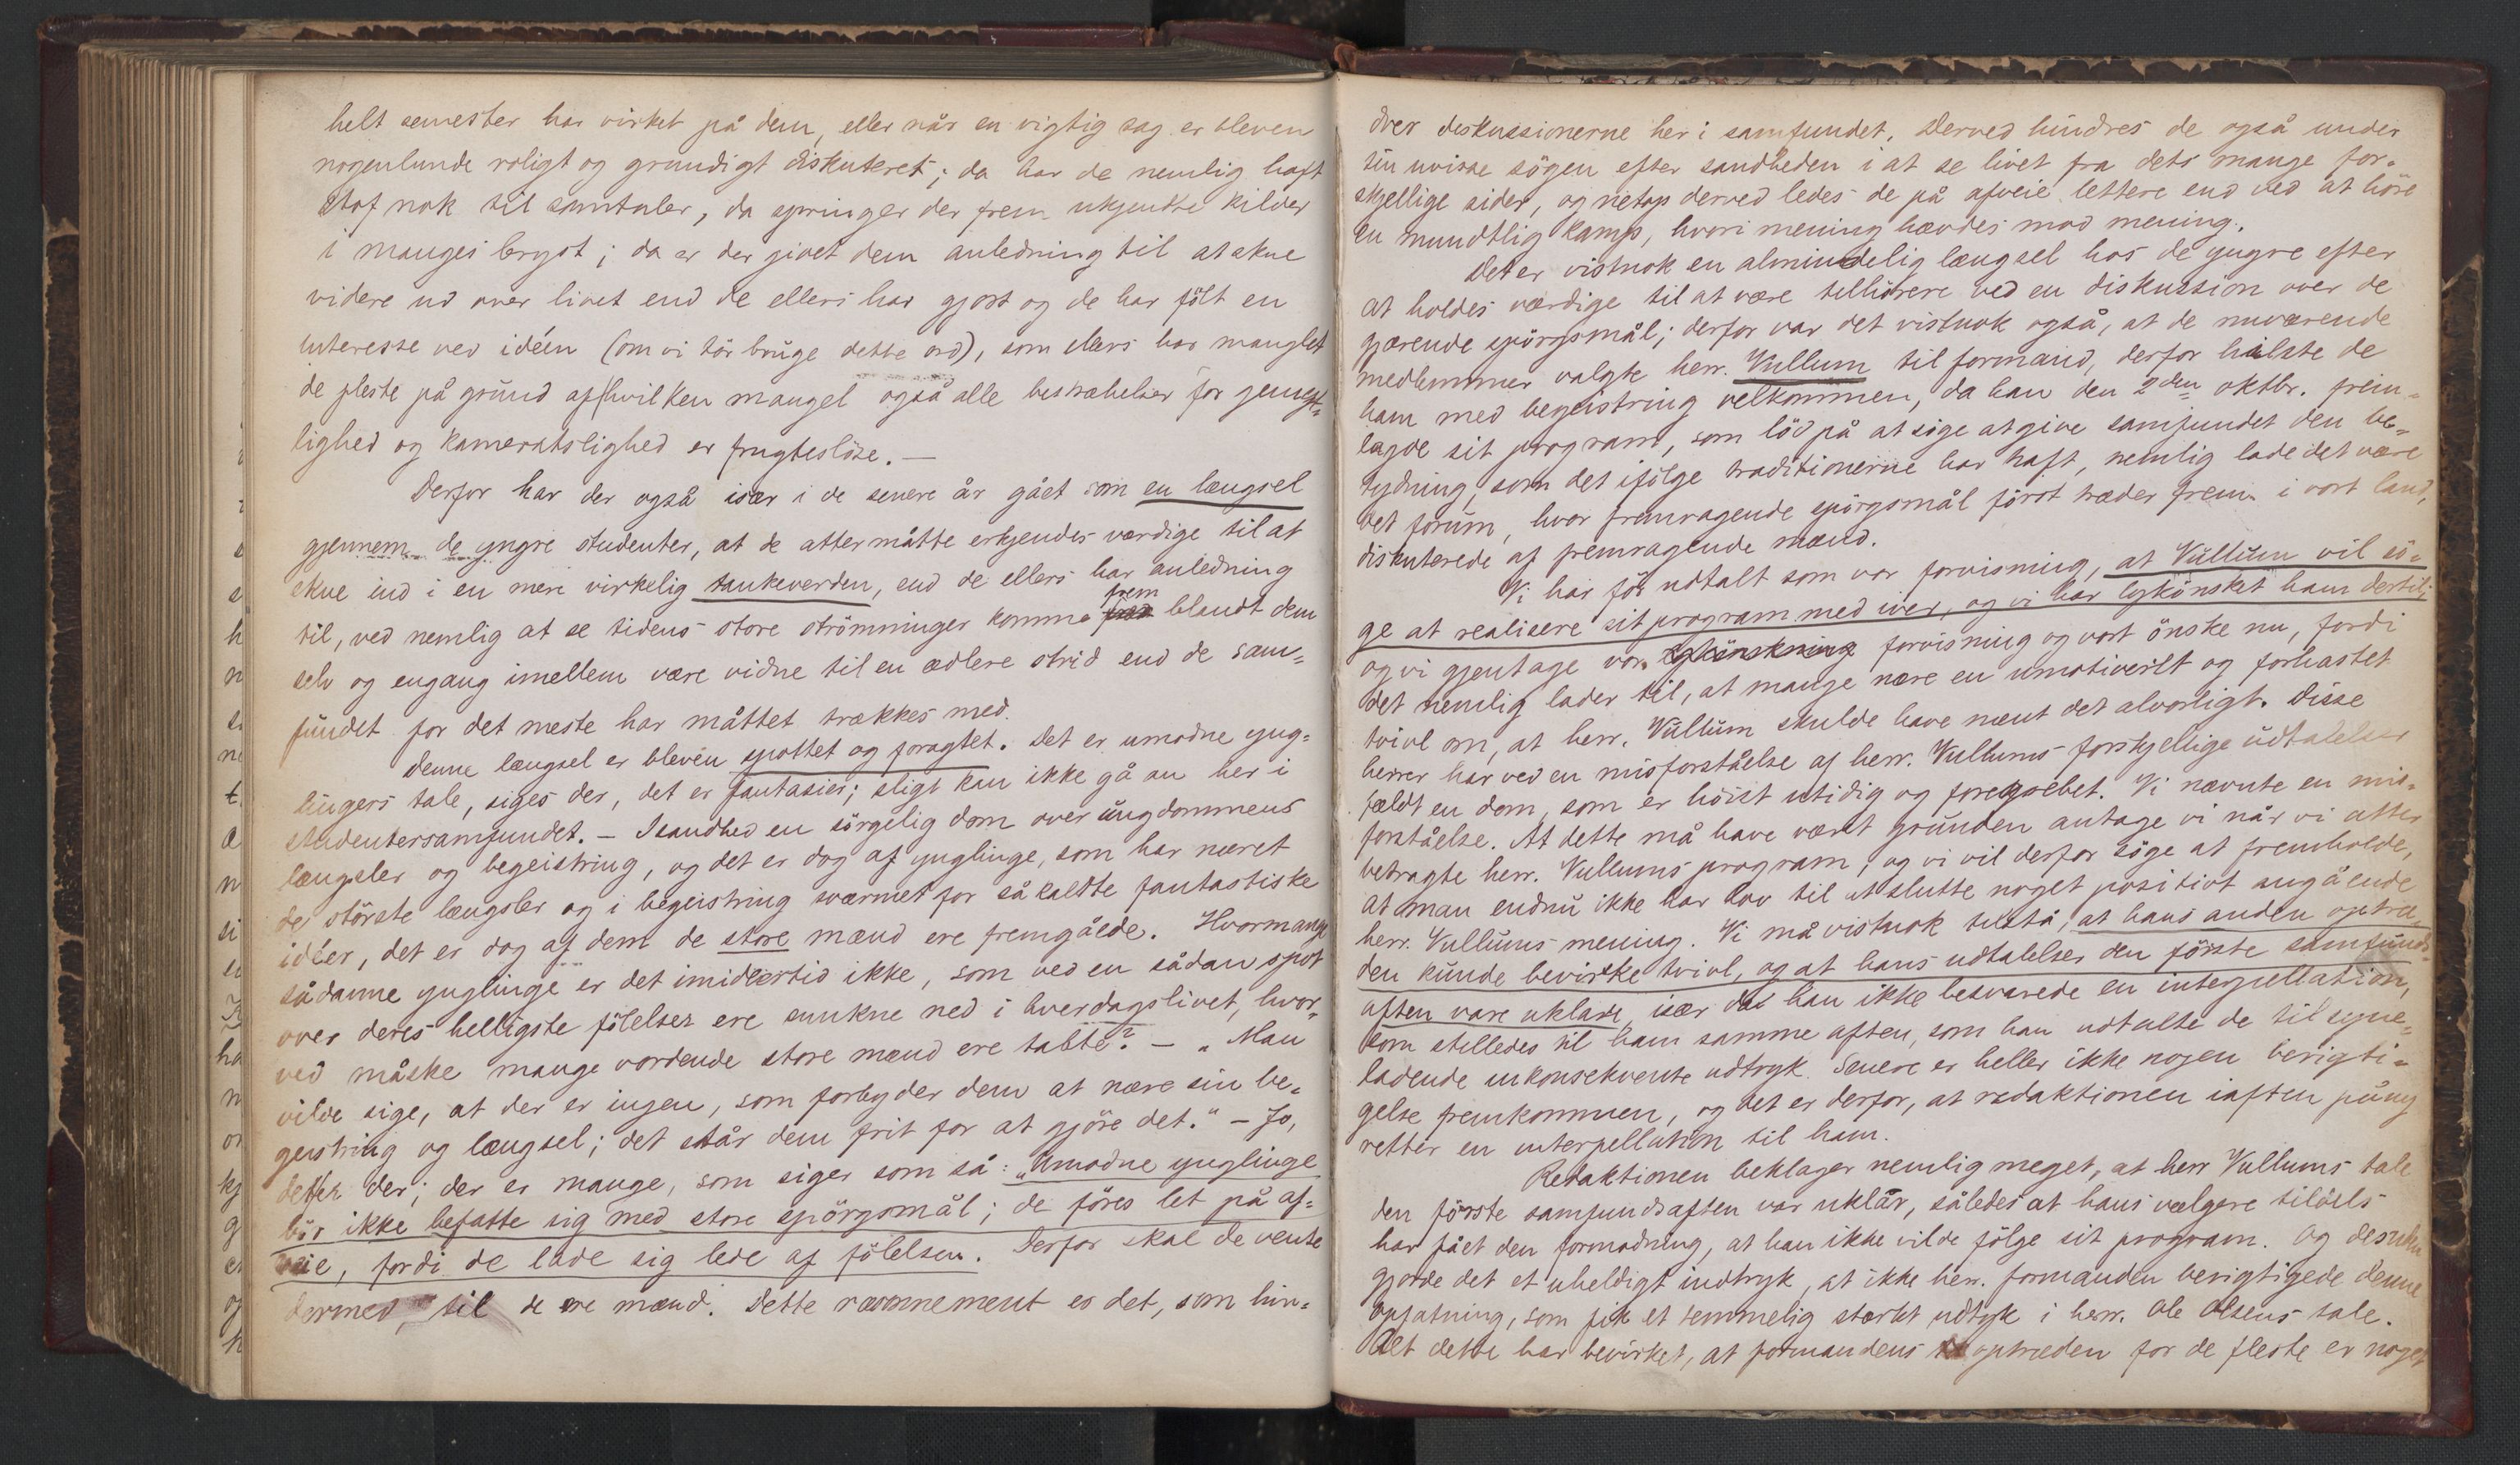 helt semester har virket på dem, eller når en vigtig sag er bleven
nogenlunde roligt og grundigt diskuteret; da har de nemlig haft
stof nok til samtaler, da springer der frem ukjendte kilder
i manges bryst; da er der givet dem anledning til at skue
videre ud over livet end de ellers har gjort og de har fölt en
interesse ved idéen (om vi tör bruge dette ord), som ellers har manglet
de fleste på grund af hvilken mangel også alle bestræbelser for gemyt-
lighed og kameratslighed er frugteslöse. —
Derfor har der også især i de senere år gået som en længsel
gjennem de yngre studenter, at de atter måtte erkjendes værdige til at
skue ind i en mere virkelig tankeverden, end de ellers har anledning
til, ved nemlig at se tidens store strömninger komme frem blandt dem
selv og engang imellem være vidne til en ædlere strid end de sam-
fundet for det meste har måttet trækkes med.
Denne længsel er bleven spottet og foragtet. Det er umodne yng-
lingers tale, siges der, det er fantasier; sligt kan ikke gå an her i
studentersamfundet. – I sandhed en sörgelig dom over ungdommens
længseler og begeistring, og det er dog af ynglinge, som har næret
de störste længsler og i begeistring sværmet for så kaldte fantastiske
idéer, det er dog af dem de store mænd ere fremgåede. Hvormange
sådanne ynglinge er det imidlertid ikke, som ved en sådan spot
over deres helligste fölelser ere sunkne ned i hverdagslivet, hvor-
ved måske mange vordende store mænd ere tabte? – „Man
vilde sige, at der er ingen, som forbyder dem at nære sin be-
geistring og længsel; det står dem frit for at gjöre det.“ – Jo,
det er der; der er mange, som siger som så: „Umodne ynglinge
bör ikke befatte sig med store spörgsmål; de föres let på af-
veie, fordi de lade sig lede af fölelsen. Derfor skal de vente
dermed, til de ere mænd. Dette ræsonnement er det, som hin-
drer diskussionerne her i samfundet. Derved hindres de også under
sin uvisse sögen efter sandheden i at se livet fra dets mange for-
skjellige sider, og netop derved ledes de på afveie lettere end ved at höre
en mundtlig kamp, hvori mening hævdes mod mening.
Det er vistnok en almindelig længsel hos de yngre efter
at holdes værdige til at være tilhörere ved en diskussion over de
gjærende spörgsmål; derfor var det vistnok også, at de nuværende
medlemmer valgte herr. Vullum til formand, derfor hilste de
ham med begeistring velkommen, da han den 2den oktbr. frem-
lagde sit program, som löd på at söge at give samfundet den be-
tydning, som det ifölge traditionerne har haft, nemlig lade det være
det forum, hvor fremragende spörgsmål först træder frem i vort land,
diskuterede af fremragende mænd.
Vi har för udtalt som vor forvisning, at Vullum vil sö-
ge at realisere sit program med iver, og vi har lykönsket ham dertil;
og vi gjentage vor lykönskning forvisning og vort önske nu, fordi
det nemlig lader til, at mange nære en umotiveret og forhastet
tvivl om, at herr. Vullum skulde have ment det alvorligt. Disse
herrer har ved en misforståelse af herr. Vullums forskjellige udtalelser
fældt en dom, som er höist utidig og foregrebet. Vi nævnte en mis-
forståelse. At dette må have været grunden antage vi når vi atter
betragte herr. Vullums program, og vi vil derfor söge at fremholde,
at man endnu ikke har lov til at slutte noget positivt angående
herr. Vullums mening. Vi må vistnok tilstå, at hans anden optræ-
den kunde bevirke tvivl, og at hans udtalelser den förste samfunds-
aften vare uklare, især da han ikke besvarede en interpellation,
som stilledes til ham samme aften, som han udtalte de tilsyne-
ladende inkonsekvente udtryk. Senere er heller ikke nogen berigti-
gelse fremkommen, og det er derfor, at redaktionen iaften påny
retter en interpellation til ham.
Redaktionen beklager nemlig meget, at herr Vullums tale
den förste samfundsaften var uklar, således at hans vælgere tildels
har fået den formodning, at han ikke vilde fölge sit program. Og desuden
gjorde det et uheldigt indtryk, at ikke herr. formanden berigtigede denne
opfatning, som fik et temmelig stærkt udtryk i herr. Ole Olsens tale.
Alt dette har bevirket, at formandens optræden for de fleste er noget